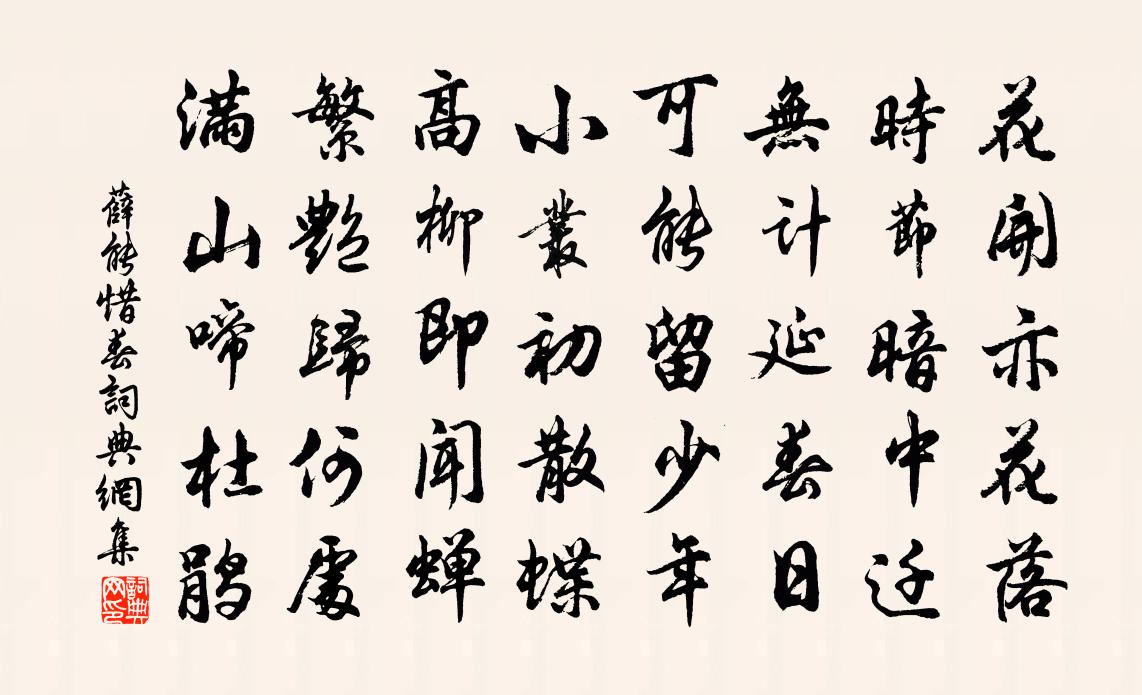 花開亦花落
時節暗中迁
無計延春日
可能留少年
小叢初散蝶
高柳即闻蝉
繁艷歸何處
滿山啼杜鹃
薛能惜春詞典網集
詞典网印